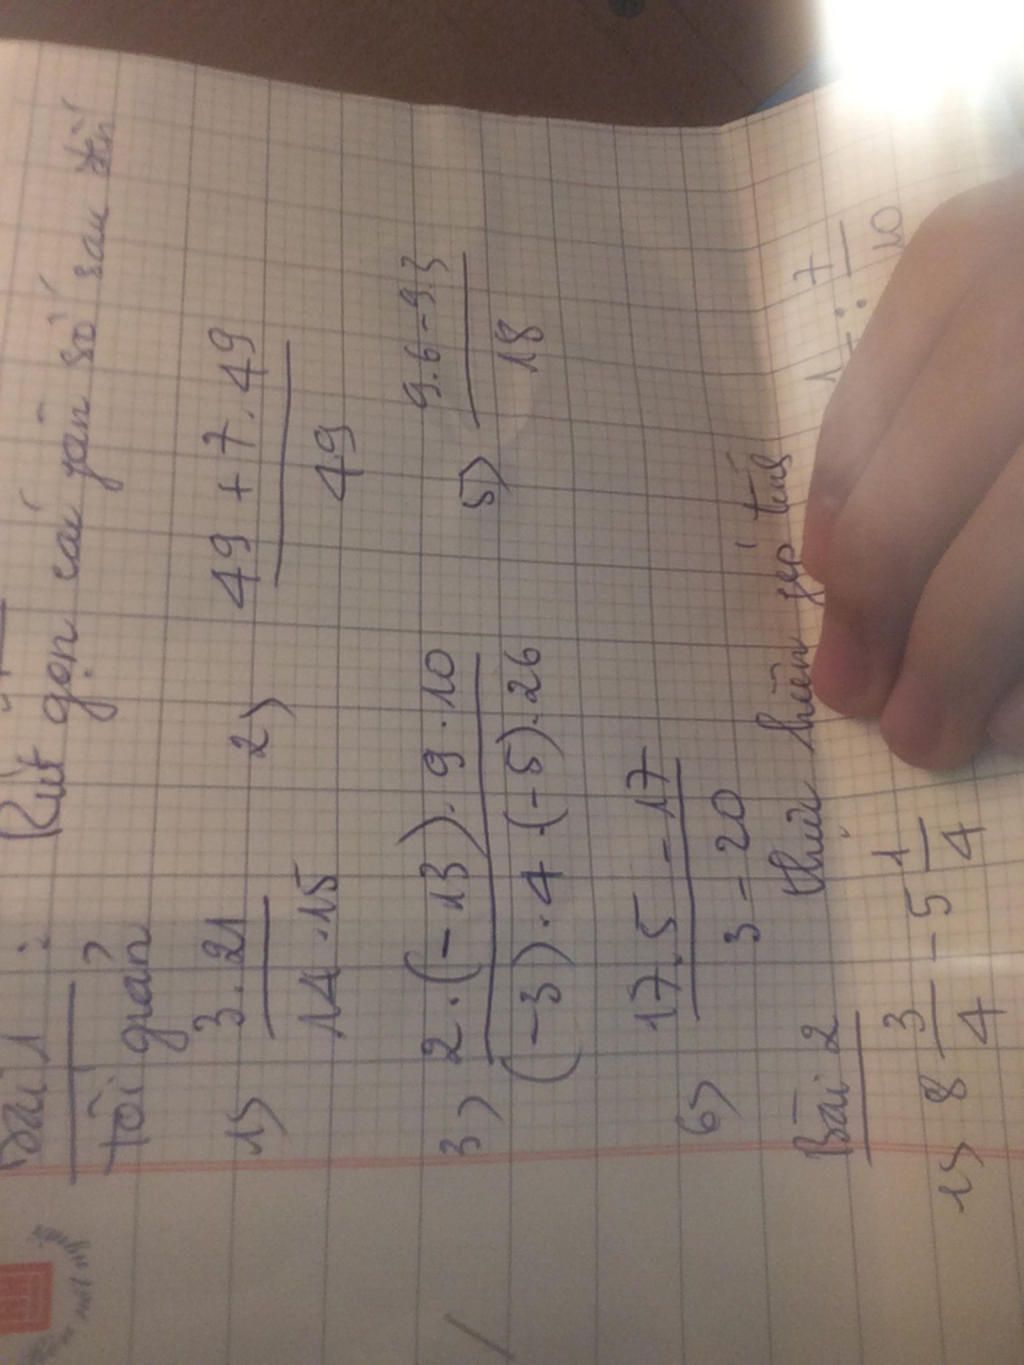 Bài 1 : Rút gọn các phân số sau đến
tối giản
1) 3.21 / 14.15 2) 49 + 7.49 / 49
3) 2.(-13).9.10 / (-3).4.(-5).26 5) 9.6-9.3 / 18
6) 17.5 - 17 / 3 - 20
Bài 2 thực hiện phép tính
1) 8 3/4 - 5 1/4